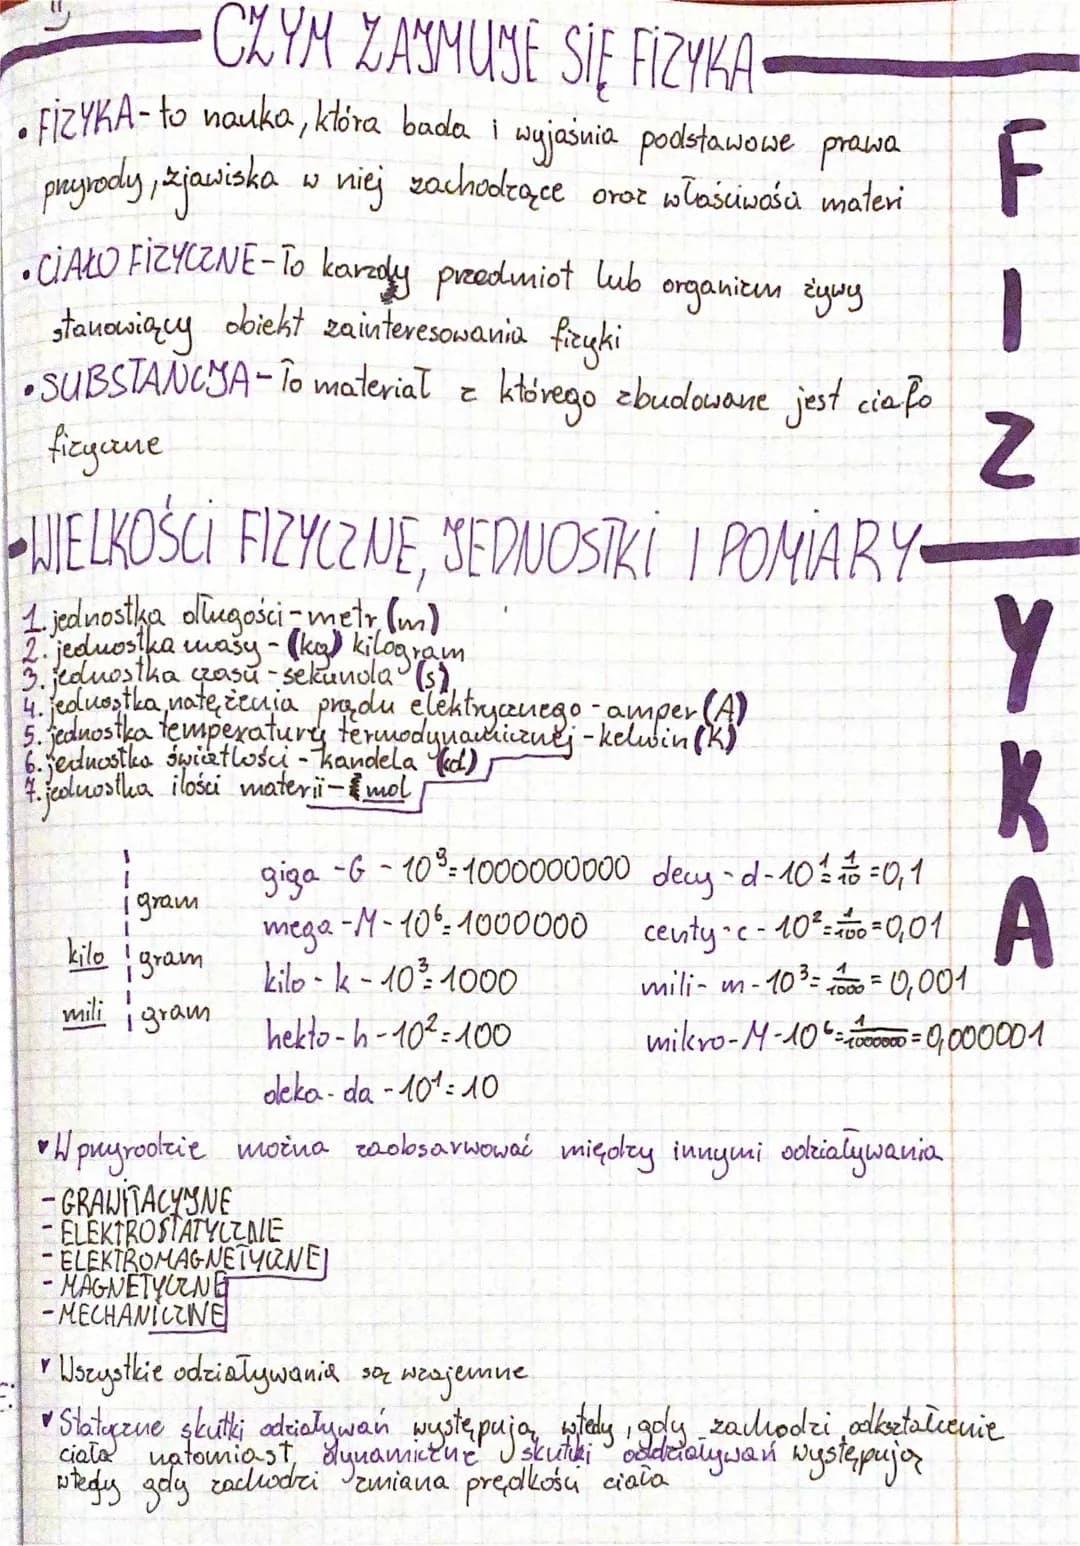 CZYM ZAJMUJE SIĘ FIZYKA
• FIZYKA - to nauka, która bada i wyjaśnia podstawowe prawa
przyrody, zjawiska w niej zachodzące oraz właściwości materi
• CIAŁO FIZYCZNE - To karzdy przedmiot lub organizm żywy
stanowiący obiekt zainteresowania fizyki
• SUBSTANCJA - To materiał z którego zbudowane jest ciało
fizyczne
- WIELKOŚCI FIZYCZNE, JEDNOSTKI I POMIARY -
1. jednostka długości - metr (m)
2. jednostka masy - (kg) kilogram
3. jednostka czasu - sekunda (s)
4. jednostka natężenia prądu elektrycznego - amper (A)
5. jednostka temperatury termodynamicznej - kelwin (K)
6. jednostka światłości - kandela (cd)
7. jednostka ilości materii - mol
gram
kilo gram
mili gram
giga - G - 10⁹ = 1000000000
mega - M - 10⁶ = 1000000
kilo - k - 10³ = 1000
hekto - h - 10² = 100
deka - da - 10¹ = 10
decy - d - 10¹ = 1/10 = 0,1
centy - c - 10² = 1/100 = 0,01
mili - m - 10³ = 1/1000 = 0,001
mikro - M - 10⁶ = 1/1000000 = 0,000001
▾ W przyrodzie można zaobsarwować między innymi odziaływania
- GRAWITACYJNE
- ELEKTROSTATYCZNE
- ELEKTROMAGNETYCZNE
- MAGNETYCZNE
- MECHANICZNE
▾ Wszystkie odziaływania są wzajemne
▾ Statyczne skutki odziaływań występują wtedy, gdy zachodzi odkształcenie
ciała natomiast dynamiczne skutki oddziaływań występują
wtedy gdy zachodzi zmiana prędkości ciała
F
I
Z
Y
K
A